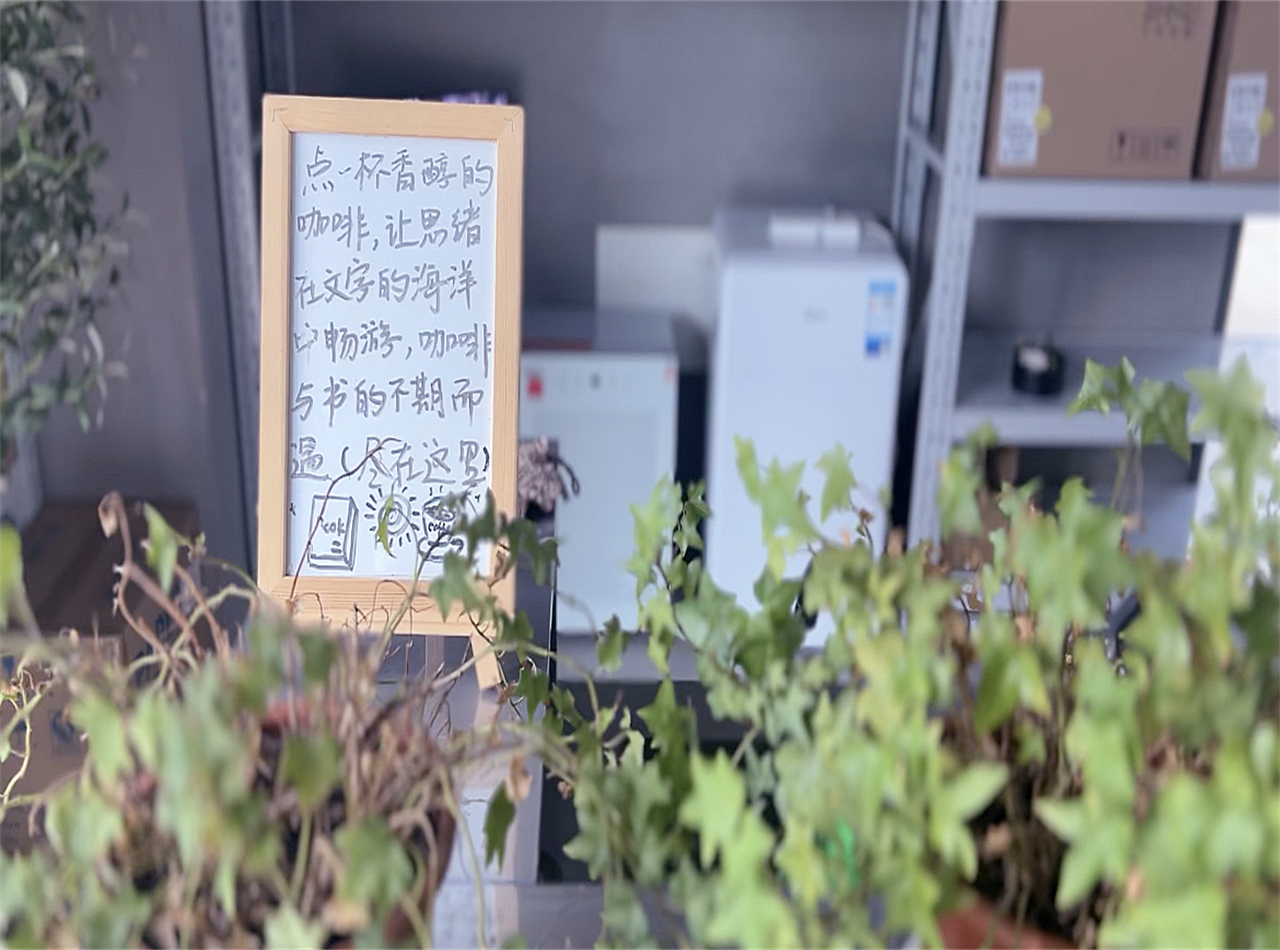 点一杯香醇的
咖啡,让思绪
在文字的海洋
中畅游,咖啡
与书的不期而
遇(尽在这里)